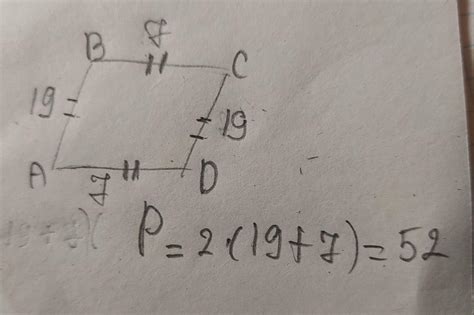 7
B C
19 19
A D
7
P = 2·(19+7) = 52